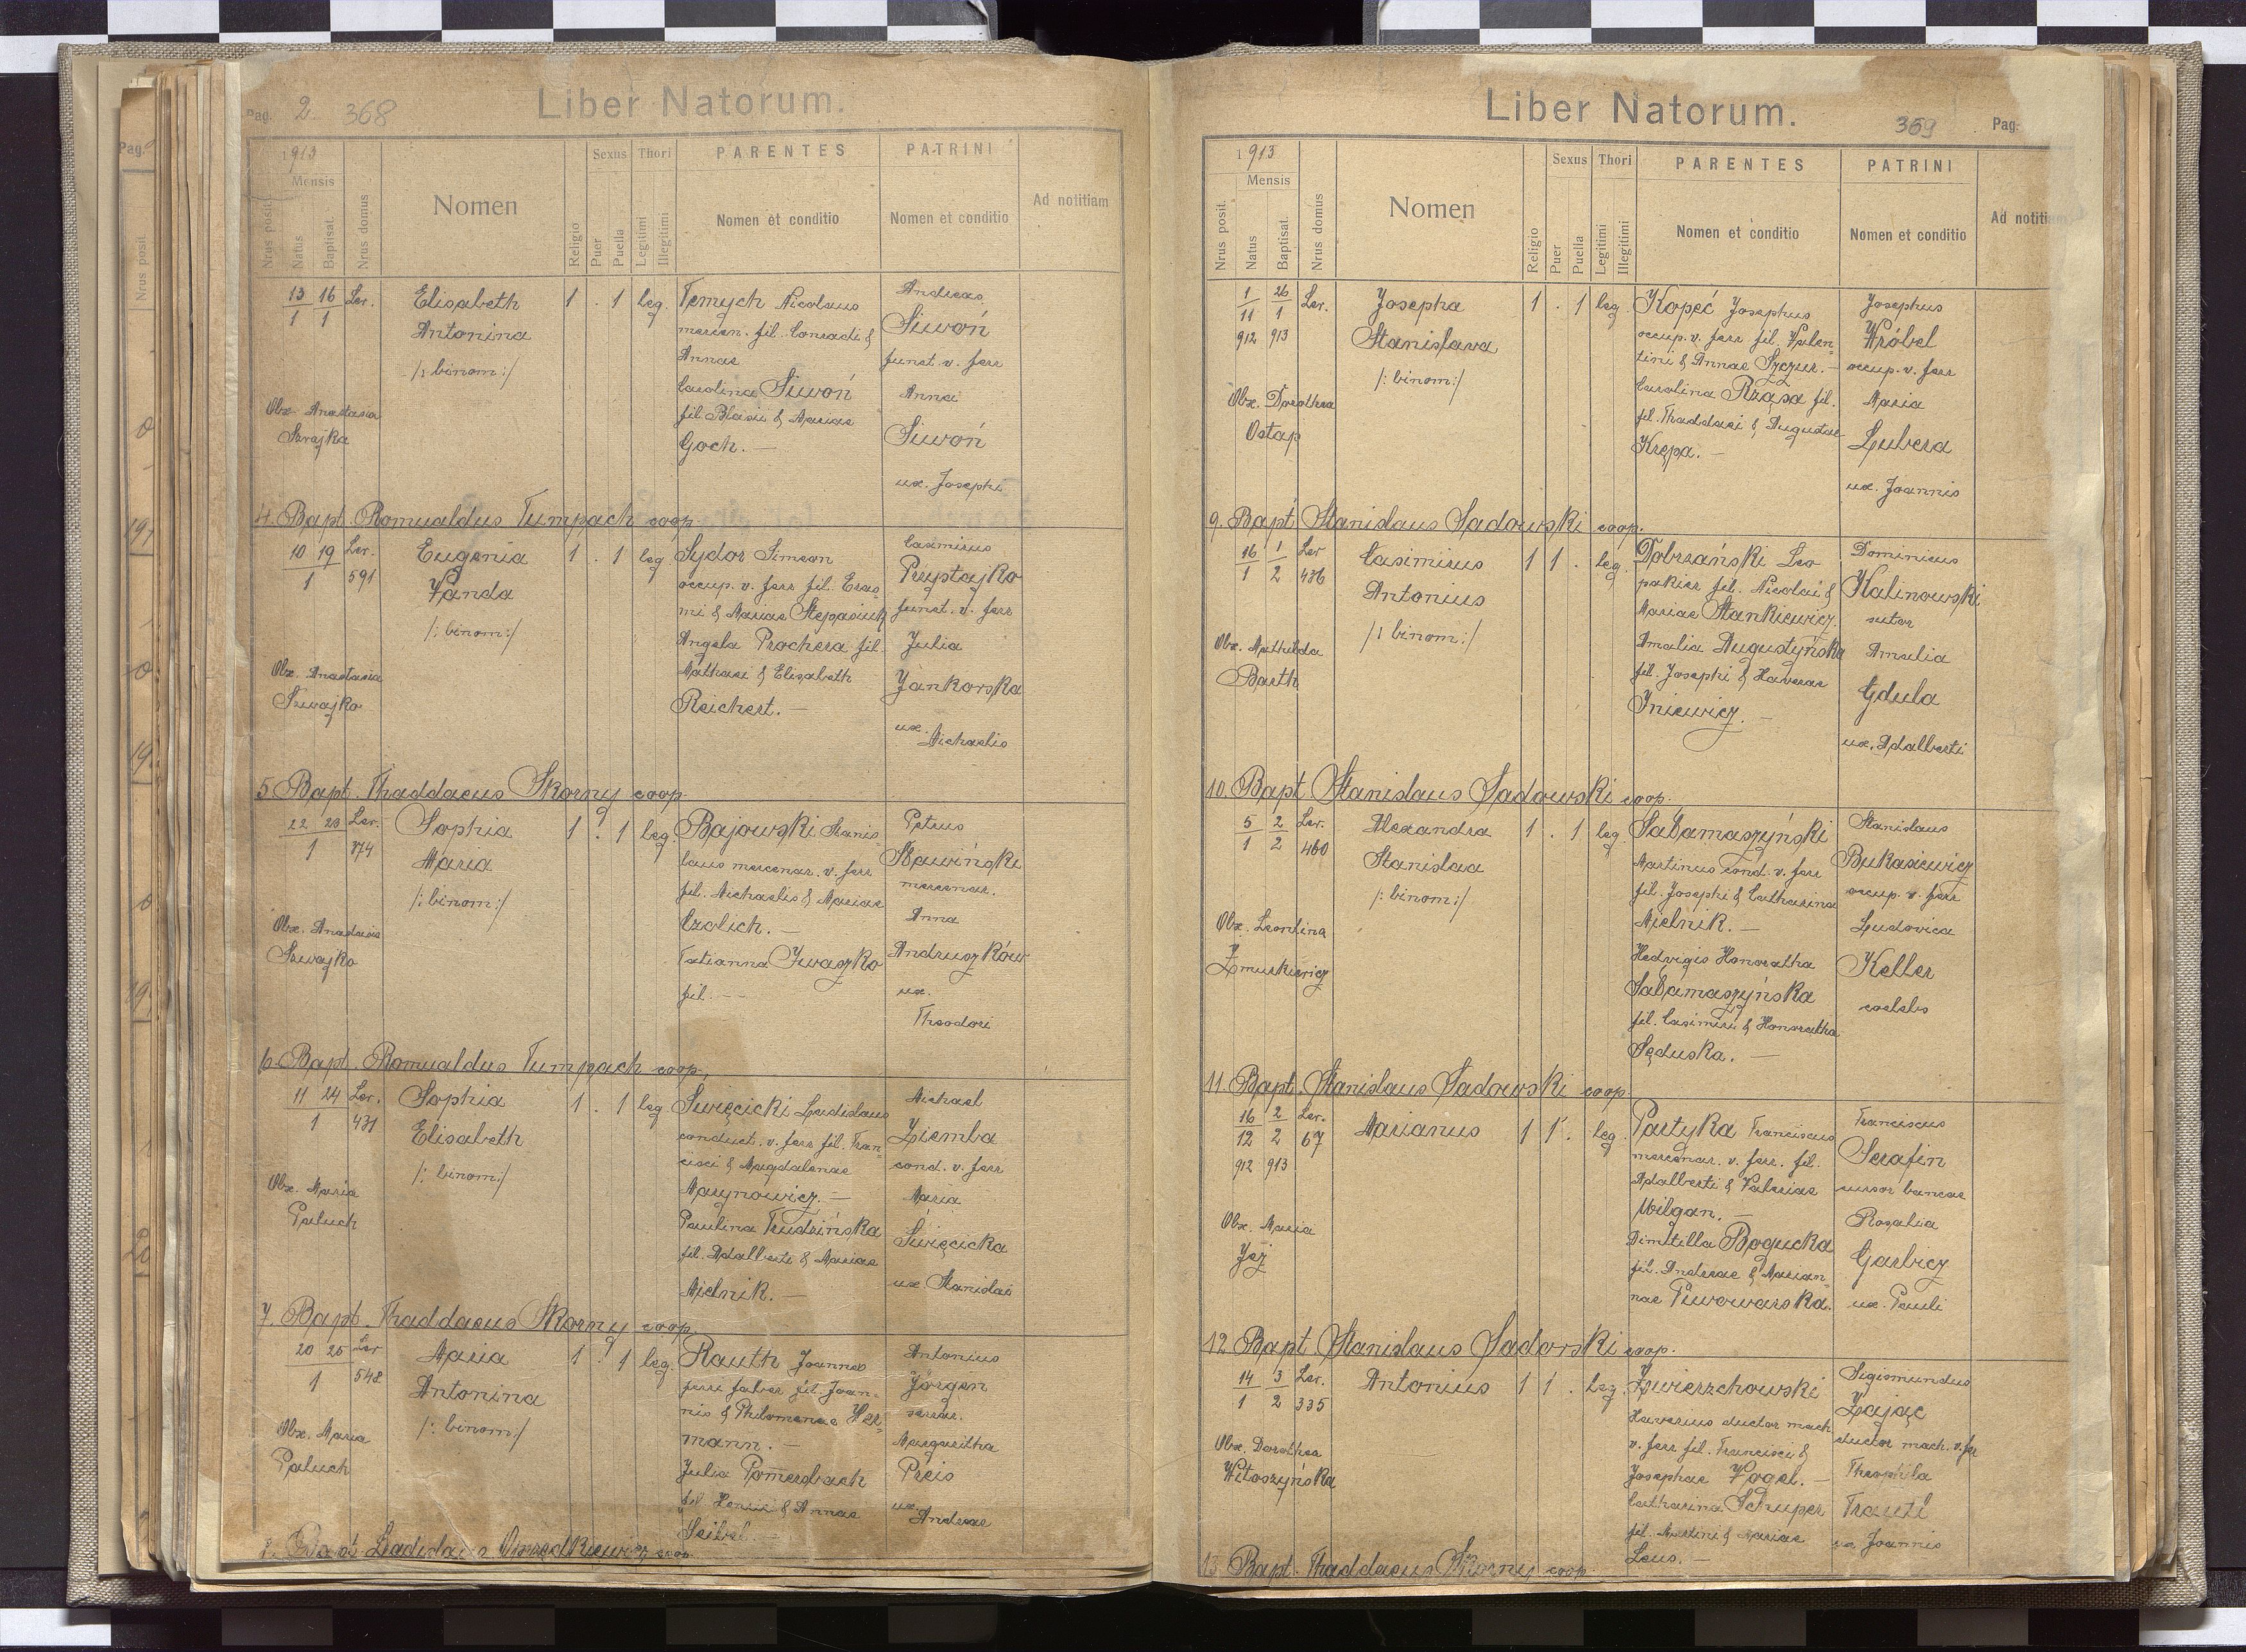 Pag. 2. 368
Liber Natorum.
1913
Mensis
Nrus posit.
Natus
Baptisat.
Nrus domus
Nomen
Religio
Sexus
Puer
Puella
Thori
Legitimi
Illegitimi
PARENTES
Nomen et conditio
PATRINI
Nomen et conditio
Ad notitiam
13 16 Ler. Elisabeth 1 . 1 leg. Temych Nicolaus Andreas
1 1 Antonina mercen. fil. Conradi & Siwoń
/: binom:/ Annae funct. v. ferr
Carolina Siwoń Anna
Obx. Anastasia fil. Blasii & Mariae Siwoń
Szwajka Goch. — ux. Josephi
4. Bapt. Romualdus Tumpach coop.
10 19 Ler. Eugenia 1 . 1 leg Sydor Simeon Casimirus
1 591 Vanda occup. v. ferr fil. Eras- Przystajko
/: binom:/ mi & Mariae Stepasiuk funct. v. ferr
Angela Prochera fil. Julia
Obx. Anastasia Mathaei & Elisabeth Jankorska
Szwajko Reichert. — ux. Michaelis
5. Bapt. Thaddaeus Skorny coop.
22 23 Ler. Sophia 1 . 1 leg. Bajowski Stanis- Petrus
1 374 Maria laus mercenar. v. ferr Sławiński
/: binom:/ fil. Michaelis & Mariae mercenar.
Czolich. — Anna
Obx. Anastasia Tatianna Iwaszko Andruszków
Szwajko fil. — — ux.
Theodori
6. Bapt. Romualdus Tumpach coop.
11 24 Ler. Sophia 1 . 1 leg. Święcicki Ladislaus Michael
1 431 Elisabeth conduct. v. ferr fil. Fran- Ziemba
/: binom:/ cisci & Magdalenae cond. v. ferr
Marynowicz. — Maria
Obx. Maria Paulina Trudzińska Święcicka
Paluch fil. Adalberti & Mariae ux Stanislai
Mielnik. —
7. Bapt. Thaddaeus Skorny coop.
20 25 Ler Maria 1 . 1 leg. Rauth Joannes Antonius
1 548 Antonina ferri faber fil. Joan- Jörgen
/: binom:/ nis & Philomenae Her- serrar.
mann. — Margaritha
Obx. Maria Julia Pomersbach Preis
Paluch fil Henrici & Annae ux. Andreae
Seibel —
8. Bapt. Ladislaus coop.
Liber Natorum.
359 Pag.
1913
Mensis
Nrus posit.
Natus
Baptisat.
Nrus domus
Nomen
Religio
Sexus
Puer
Puella
Thori
Legitimi
Illegitimi
PARENTES
Nomen et conditio
PATRINI
Nomen et conditio
Ad notitiam
1 26 Ler. Josepha 1 . 1 leg Kopeć Josephus Josephus
11 1 Stanislava occup. v. ferr fil. Valen- Wróbel
912 913 /: binom:/ tini & Annae Szczur. — occup. v. ferr
Carolina Rząsa fil. Maria
Obx. Dorothea fil. Thaddaei & Augustae Lubera
Ostap Krępa. — ux. Joannis
9. Bapt. Stanislaus Sadowski coop.
16 1 Ler Casimirus 1 1 . leg. Dobrzański Leo Dominicus
1 2 436 Antonius pakier fil. Nicolai & Kalinowski
/: binom:/ Mariae Stankiewicz. sutor
Obx. Mathilda Amalia Augustyńska Amalia
Barth fil. Josephi & Xaverae Gdula
Iniewicz. — ux. Adalberti
10. Bapt. Stanislaus Sadowski coop.
5 2 Ler. Alexandra 1 . 1 leg Sałamaszyński Stanislaus
1 2 460 Stanislaa Martinus cond. v. ferr Bukasiewicz
/: binom:/ fil. Josephi & Catharina occup. v. ferr
Obx. Leontina Mielnik. — Ludovica
Żmurkiewicz Hedvigis Honoratha Keller
Sałamaszyńska coelebs
fil. Casimiri & Honoratha
Sęduska. —
11. Bapt. Stanislaus Sadowski coop.
16 2 Ler. Marianus 1 1 . leg. Partyka Franciscus Franciscus
12 2 67 mercenar. v. ferr. fil. Serafin
912 913 Adalberti & Valeriae cursor bancae
Wilgan. — Rosalia
Obx. Maria Dimitilla Bogucka Garbicz
Jeż fil. Andreae & Marian- ux. Pauli
nae Piwowarska.
12. Bapt. Stanislaus Sadowski coop.
14 3 Ler. Antonius 1 1 . leg. Zwierzchowski Sigismundus
1 2 335 Xaverius ductor mach Zając
v. ferr fil. Francisci & ductor mach. v. fer
Obx. Dorothea Josephae Vogel. — Theophila
Witoszyńska Catharina Schuper Trautl
fil. Martini & Mariae ux. Joannis
Leus. —
13. Bapt. Thaddaeus Skorny coop.